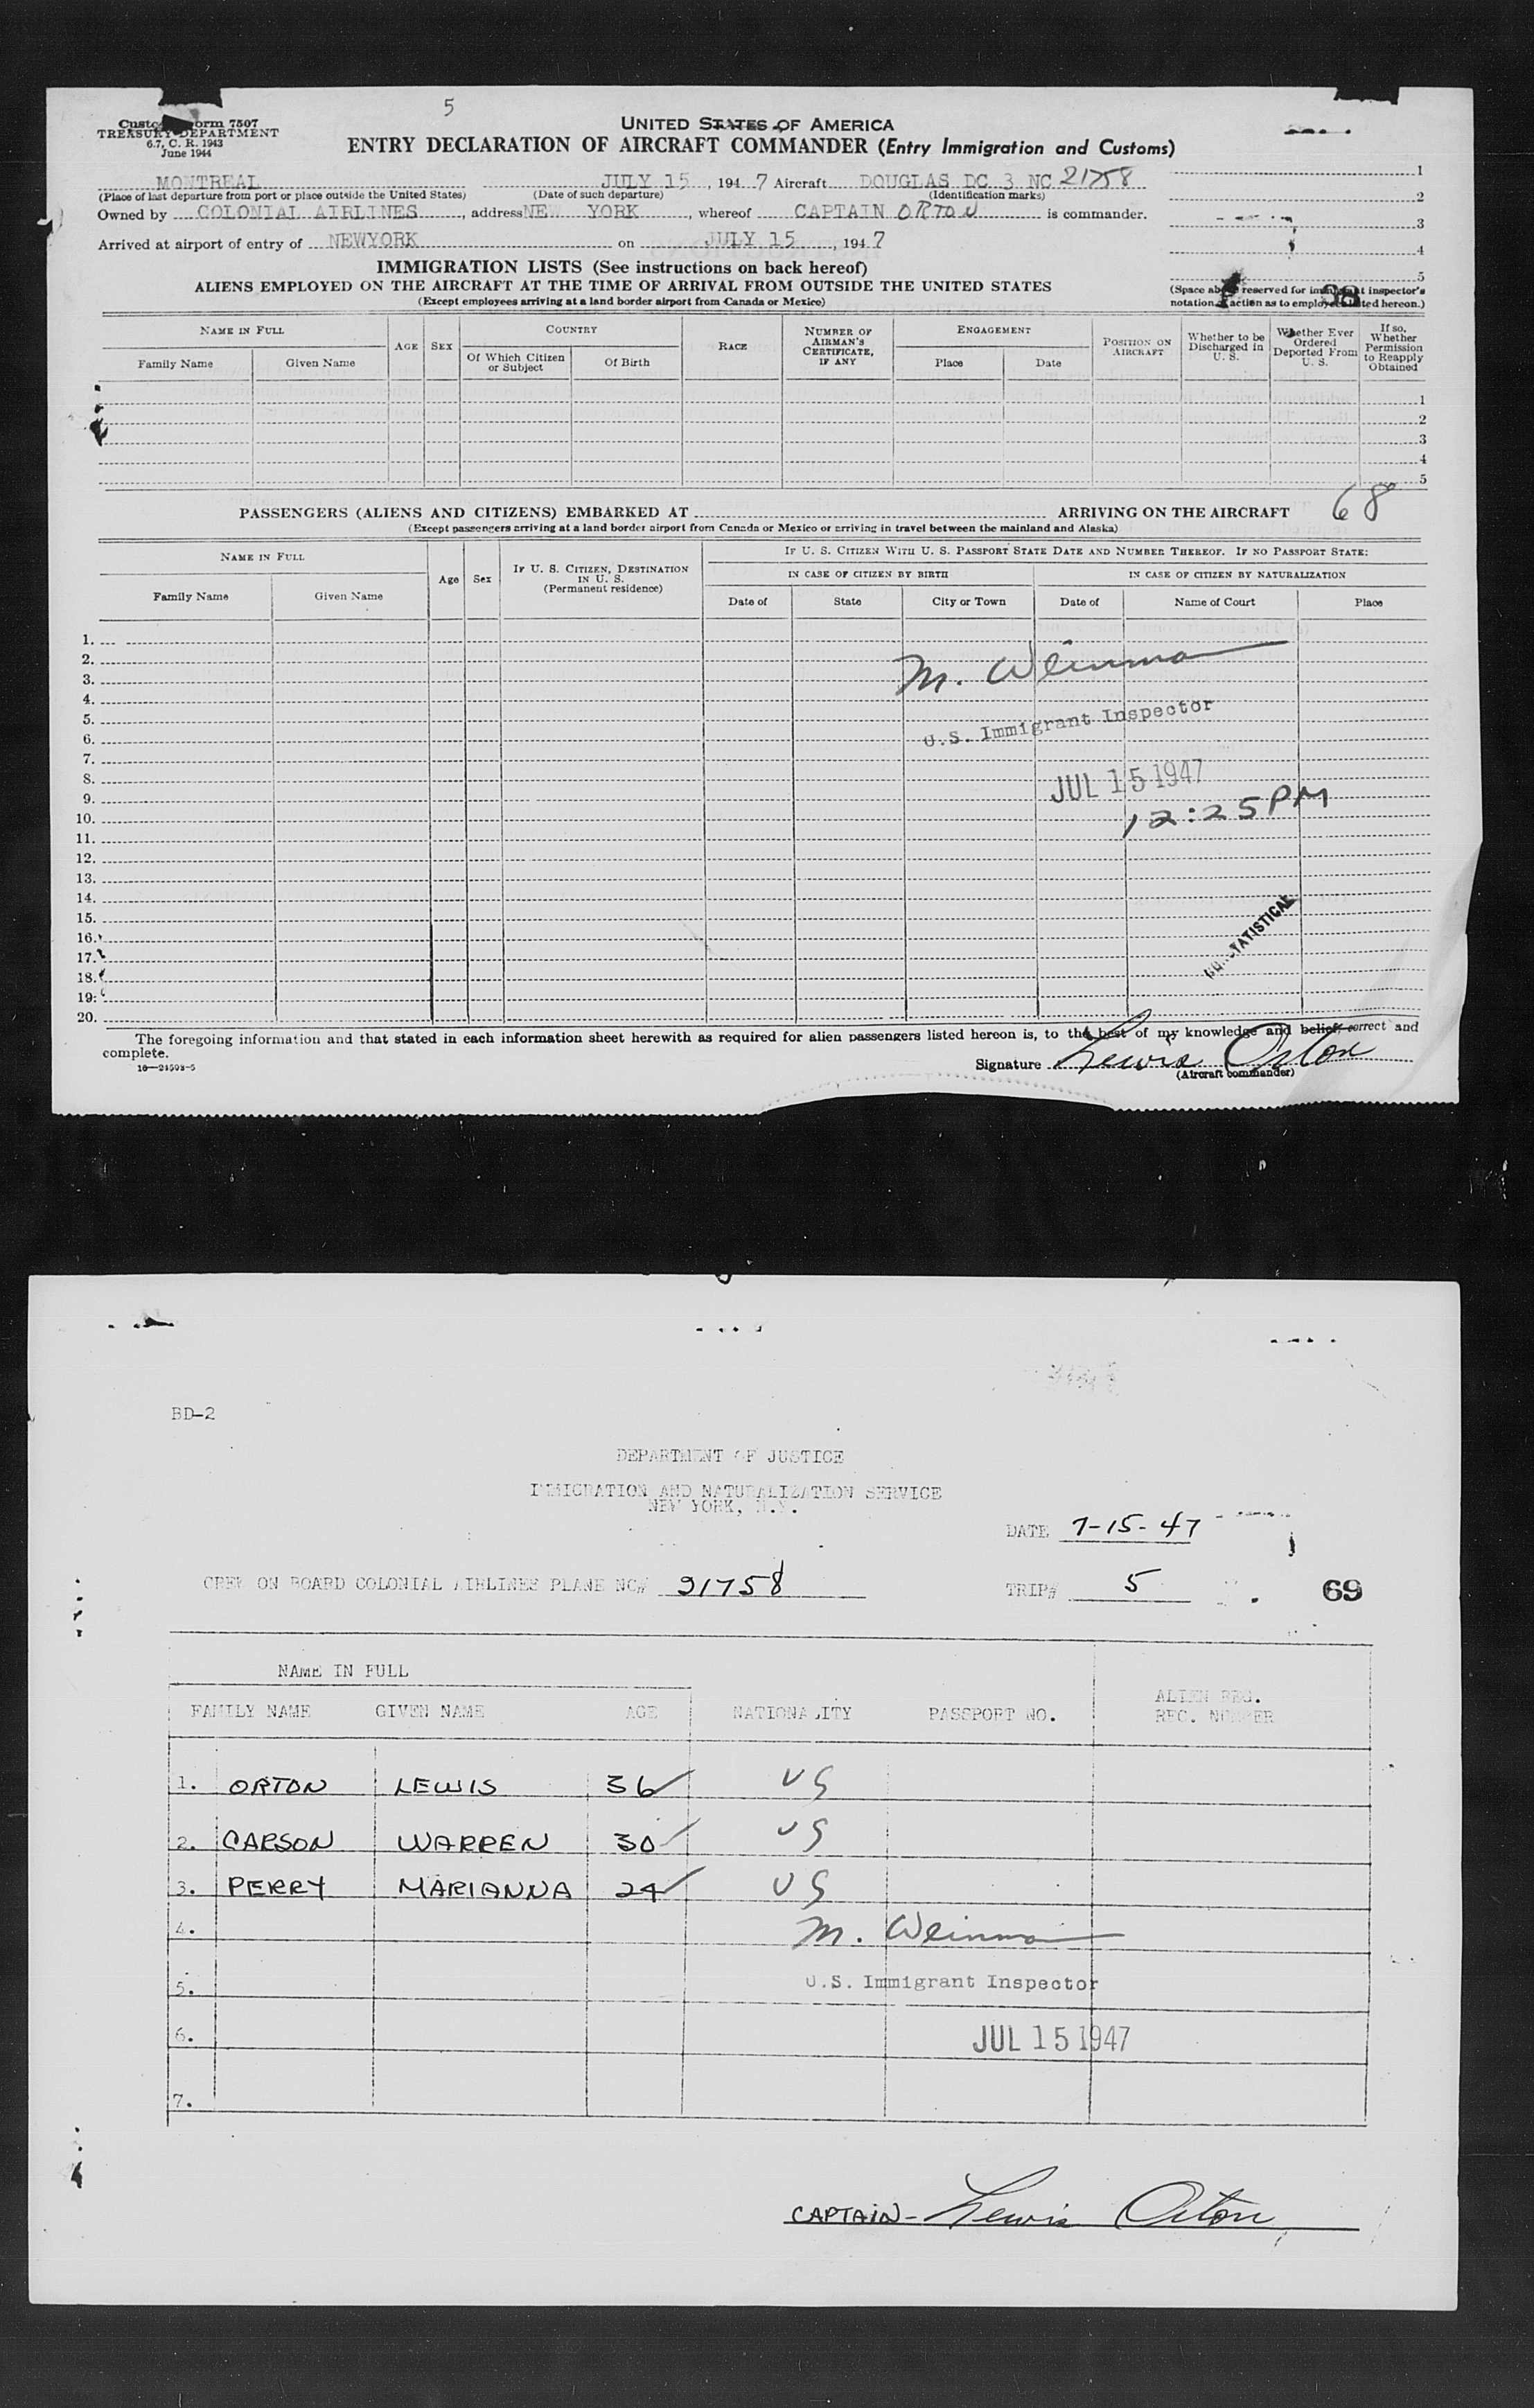 5
Customs Form 7507
TREASURY DEPARTMENT
6.7, C. R. 1943
June 1944
UNITED STATES OF AMERICA
ENTRY DECLARATION OF AIRCRAFT COMMANDER (Entry Immigration and Customs)
MONTREAL JULY 15, 1947 Aircraft DOUGLAS DC 3 NC 21758
(Place of last departure from port or place outside the United States) (Date of such departure) (Identification marks)
Owned by COLONIAL AIRLINES, address NEW YORK, whereof CAPTAIN ORTON is commander.
Arrived at airport of entry of NEWYORK on JULY 15, 1947
1
2
3
4
5
(Space above reserved for immigrant inspector's
notation of action as to employees listed hereon.)
IMMIGRATION LISTS (See instructions on back hereof)
ALIENS EMPLOYED ON THE AIRCRAFT AT THE TIME OF ARRIVAL FROM OUTSIDE THE UNITED STATES
(Except employees arriving at a land border airport from Canada or Mexico)
NAME IN FULL
Family Name Given Name
AGE SEX
COUNTRY
Of Which Citizen or Subject
Of Birth
RACE
NUMBER OF AIRMAN'S CERTIFICATE, IF ANY
ENGAGEMENT
Place Date
POSITION ON AIRCRAFT
Whether to be Discharged in U. S.
Whether Ever Ordered Deported From U. S.
If so, Whether Permission to Reapply Obtained
1
2
3
4
5
PASSENGERS (ALIENS AND CITIZENS) EMBARKED AT ARRIVING ON THE AIRCRAFT 68
(Except passengers arriving at a land border airport from Canada or Mexico or arriving in travel between the mainland and Alaska)
NAME IN FULL
Family Name Given Name
Age Sex
IF U. S. CITIZEN, DESTINATION IN U. S.
(Permanent residence)
IF U. S. CITIZEN WITH U. S. PASSPORT STATE DATE AND NUMBER THEREOF. IF NO PASSPORT STATE:
IN CASE OF CITIZEN BY BIRTH IN CASE OF CITIZEN BY NATURALIZATION
Date of State City or Town Date of Name of Court Place
1.
2.
3.
M. Weinman
4.
5.
U.S. Immigrant Inspector
6.
7.
8.
JUL 15 1947
9.
12:25 PM
10.
11.
12.
13.
14.
15.
16.
17.
18.
19.
20.
The foregoing information and that stated in each information sheet herewith as required for alien passengers listed hereon is, to the best of my knowledge and belief, correct and
complete.
16—24503-5
Signature Lewis Orton
(Aircraft commander)
BD-2
DEPARTMENT OF JUSTICE
IMMIGRATION AND NATURALIZATION SERVICE
NEW YORK, N.Y.
DATE 7-15-47
CREW ON BOARD COLONIAL AIRLINES PLANE NC# 21758 TRIP# 5
69
NAME IN FULL
FAMILY NAME GIVEN NAME AGE NATIONALITY PASSPORT NO. ALIEN REG. REC. NUMBER
1. ORTON LEWIS 36 US
2. CARSON WARREN 30 US
3. PERRY MARIANNA 24 US
4. M. Weinman
5. U.S. Immigrant Inspector
6. JUL 15 1947
7.
CAPTAIN- Lewis Orton